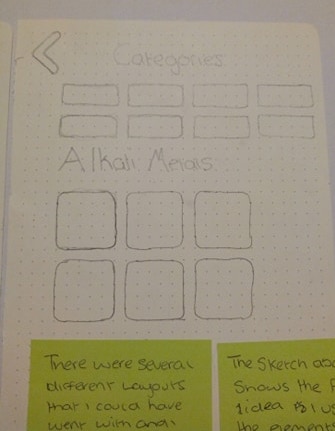 Categories
Alkali Metals
There were several
different Layouts
that I could have
went with and
The Sketch abo
Shows the f
idea I us
the elemen